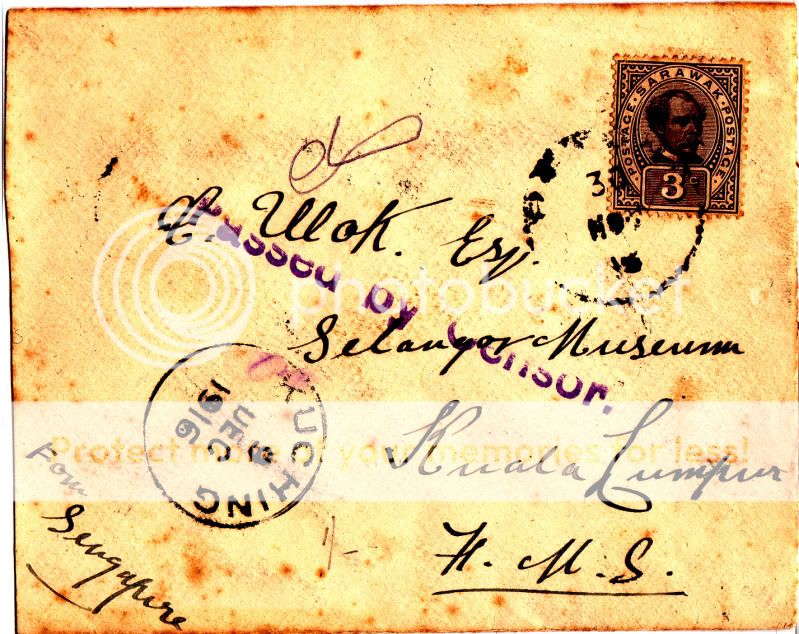 POSTAGE · SARAWAK · POSTAGE
3c
30
NO
16
E. Ulok. Esq.
Passed by Censor.
photobucket
Selangor Museum
KUCHING
DEC
1916
Protect more of your memories for less!
Kuala Lumpur
From
Sengapore
1/-
F. M. S.